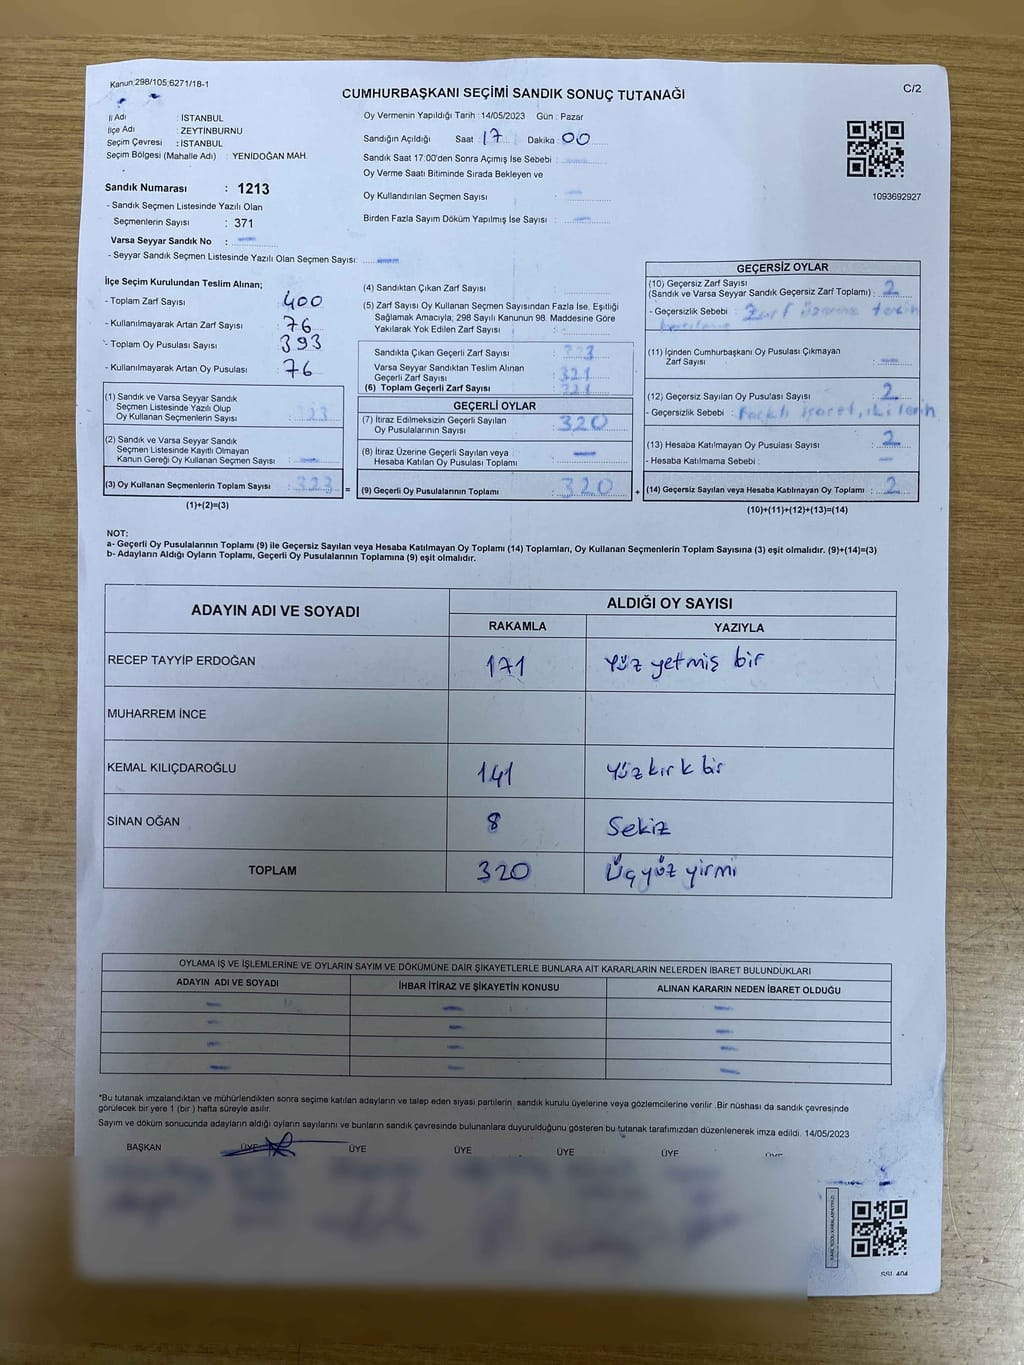 Kanun:298/105;6271/18-1
C/2
CUMHURBAŞKANI SEÇİMİ SANDIK SONUÇ TUTANAĞI
İl Adı : İSTANBUL
İlçe Adı : ZEYTİNBURNU
Seçim Çevresi : İSTANBUL
Seçim Bölgesi (Mahalle Adı) : YENİDOĞAN MAH.
Sandık Numarası : 1213
- Sandık Seçmen Listesinde Yazılı Olan
Seçmenlerin Sayısı : 371
Varsa Seyyar Sandık No :
- Seyyar Sandık Seçmen Listesinde Yazılı Olan Seçmen Sayısı:
Oy Vermenin Yapıldığı Tarih : 14/05/2023 Gün : Pazar
Sandığın Açıldığı Saat 17 Dakika 00
Sandık Saat 17:00'den Sonra Açımış İse Sebebi :
Oy Verme Saati Bitiminde Sırada Bekleyen ve
Oy Kullandırılan Seçmen Sayısı :
Birden Fazla Sayım Döküm Yapılmış İse Sayısı :
1093692927
İlçe Seçim Kurulundan Teslim Alınan;
- Toplam Zarf Sayısı : 400
- Kullanılmayarak Artan Zarf Sayısı : 76
- Toplam Oy Pusulası Sayısı : 393
- Kullanılmayarak Artan Oy Pusulası : 76
(1) Sandık ve Varsa Seyyar Sandık
Seçmen Listesinde Yazılı Olup
Oy Kullanan Seçmenlerin Sayısı : 323
(2) Sandık ve Varsa Seyyar Sandık
Seçmen Listesinde Kayıtlı Olmayan
Kanun Gereği Oy Kullanan Seçmen Sayısı :
(3) Oy Kullanan Seçmenlerin Toplam Sayısı : 323 =
(1)+(2)=(3)
(4) Sandıktan Çıkan Zarf Sayısı :
(5) Zarf Sayısı Oy Kullanan Seçmen Sayısından Fazla İse, Eşitliği
Sağlamak Amacıyla; 298 Sayılı Kanunun 98. Maddesine Göre
Yakılarak Yok Edilen Zarf Sayısı :
Sandıkta Çıkan Geçerli Zarf Sayısı :
Varsa Seyyar Sandıktan Teslim Alınan
Geçerli Zarf Sayısı : 321
(6) Toplam Geçerli Zarf Sayısı : 321
GEÇERLİ OYLAR
(7) İtiraz Edilmeksizin Geçerli Sayılan
Oy Pusulalarının Sayısı : 320
(8) İtiraz Üzerine Geçerli Sayılan veya
Hesaba Katılan Oy Pusulası Toplamı :
(9) Geçerli Oy Pusulalarının Toplamı : 320 +
GEÇERSİZ OYLAR
(10) Geçersiz Zarf Sayısı
(Sandık ve Varsa Seyyar Sandık Geçersiz Zarf Toplamı) : 2
- Geçersizlik Sebebi : Zarf üzerine tercih
(11) İçinden Cumhurbaşkanı Oy Pusulası Çıkmayan
Zarf Sayısı :
(12) Geçersiz Sayılan Oy Pusulası Sayısı : 2
- Geçersizlik Sebebi : işaret, iki
(13) Hesaba Katılmayan Oy Pusulası Sayısı : 2
- Hesaba Katılmama Sebebi :
(14) Geçersiz Sayılan veya Hesaba Katılmayan Oy Toplamı : 2
(10)+(11)+(12)+(13)=(14)
NOT:
a- Geçerli Oy Pusulalarının Toplamı (9) ile Geçersiz Sayılan veya Hesaba Katılmayan Oy Toplamı (14) Toplamları, Oy Kullanan Seçmenlerin Toplam Sayısına (3) eşit olmalıdır. (9)+(14)=(3)
b- Adayların Aldığı Oyların Toplamı, Geçerli Oy Pusulalarının Toplamına (9) eşit olmalıdır.
ADAYIN ADI VE SOYADI
ALDIĞI OY SAYISI
RAKAMLA YAZIYLA
RECEP TAYYİP ERDOĞAN 171 Yüz yetmiş bir
MUHARREM İNCE
KEMAL KILIÇDAROĞLU 141 Yüz kırk bir
SİNAN OĞAN 8 Sekiz
TOPLAM 320 Üç yüz yirmi
OYLAMA İŞ VE İŞLEMLERİNE VE OYLARIN SAYIM VE DÖKÜMÜNE DAİR ŞİKAYETLERLE BUNLARA AİT KARARLARIN NELERDEN İBARET BULUNDUKLARI
ADAYIN ADI VE SOYADI
İHBAR İTİRAZ VE ŞİKAYETİN KONUSU
ALINAN KARARIN NEDEN İBARET OLDUĞU
*Bu tutanak imzalandıktan ve mühürlendikten sonra seçime katılan adayların ve talep eden siyasi partilerin sandık kurulu üyelerine veya gözlemcilerine verilir. Bir nüshası da sandık çevresinde
görülecek bir yere 1 (bir) hafta süreyle asılır.
Sayım ve döküm sonucunda adayların aldığı oyların sayılarını ve bunların sandık çevresinde bulunanlara duyurulduğunu gösteren bu tutanak tarafımızdan düzenlenerek imza edildi. 14/05/2023
BAŞKAN ÜYE ÜYE ÜYE ÜYE ÜYE